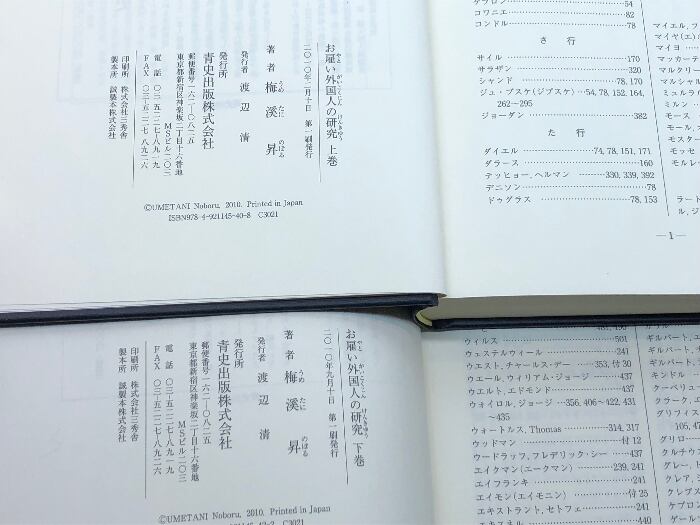 お雇い外国人の研究 上巻
やと がいこくじん けんきゅう
二〇一〇年九月十日 第一刷発行
著者 梅溪 昇
うめ たに のぼる
発行者 渡辺 清
発行所
青史出版株式会社
郵便番号一六二―〇八二五
東京都新宿区神楽坂二丁目十六番地
MSビル二〇三
電話 〇三―五二二七―八九一九
FAX 〇三―五二二七―八九二六
印刷所 株式会社三秀舎
製本所 誠製本株式会社
©UMETANI Noboru, 2010. Printed in Japan
ISBN978-4-921145-40-8 C3021
ケプロン 54
コワニエ 82
コンドル 78
さ 行
サイル 170
サラザン 320
シャンド 78, 170
ジュ・ブスケ(ジブスケ) 54, 78, 152, 164,
262~295
ジョーダン 382
た 行
ダイエル 74, 78, 151, 171
ダラース 160
テッヒョー, ヘルマン 330, 339, 392
デニソン 78
ドゥグラス 78, 153
マイエル, フ
マイヤ(エ)
マイヨ
マッカーテ
マルクリー
マルシャル
ミュルラ(
ミルン
モース
モール,
モスター
モッセ
モルレ
ラート
ル, ジ
―1―
お雇い外国人の研究 下巻
やと がいこくじん けんきゅう
二〇一〇年九月十日 第一刷発行
著者 梅溪 昇
うめ たに のぼる
発行者 渡辺 清
発行所
青史出版株式会社
郵便番号一六二―〇八二五
東京都新宿区神楽坂二丁目十六番地
MSビル二〇三
電話 〇三―五二二七―八九一九
FAX 〇三―五二二七―八九二六
印刷所 株式会社三秀舎
製本所 誠製本株式会社
©UMETANI Noboru, 2010. Printed in Japan
C3021
481, 490
ウィルス 501
ウェステルウィール 241
ウエスト, チャールス・デー 353, 付30
ウエール, ウィリアム・ジョージ 437
ウエルト, エドモンド 437
ウォイロル, ジョージ 356, 406~422, 431
~435
ウォートルス, Thomas 314, 317
ウッドマン 付12
ウードラッフ, フレデリック・シー 437
エイクマン(エークマン) 239, 241
エイフランキ 241
エイモン(エイモニン) 付25
エキストラント, セトフェ 241
エキスエル 440
ギルバート, エ
ギルバート,
キンドル
クーペリュ
クラーク, エ
グリフィス
105, 47
グリロー
クルチウ
グレー,
クレア,
クレプス
ケプロン
ゲール